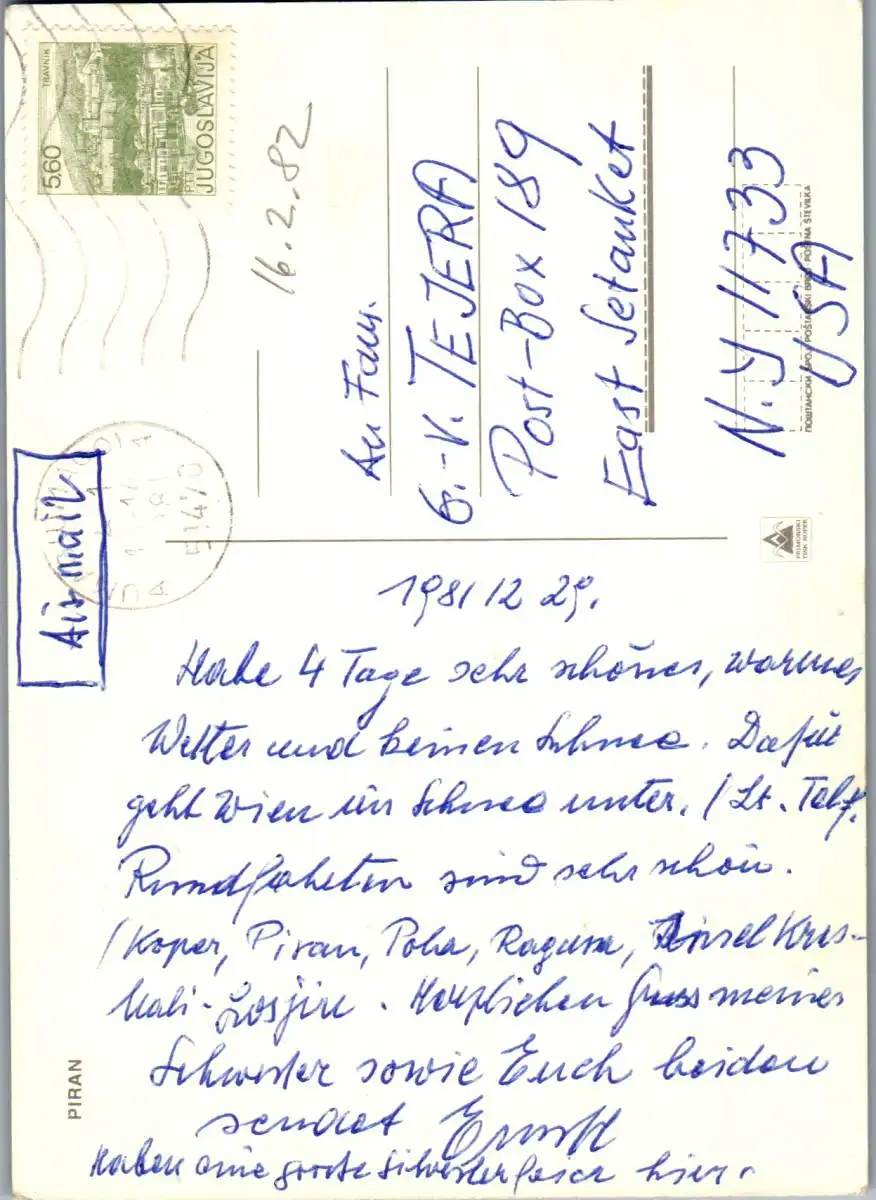 TRAVNIK
5,60
PTT
JUGOSLAVIJA
16.2.82
Air mail
51470
An Fam.
G.-V. TEJERA
Post-Box 189
East Setauket
N.Y 11733
USA
ПОШТАНСКИ БРОЈ POŠTANSKI BROJ POŠTNA ŠTEVILKA
PRIMORSKI
TISK KOPER
1981 12 29.
Habe 4 Tage sehr schönes, warmes
Wetter und keinen Schnee. Dafür
geht Wien im Schnee unter. / Lt. Telf.
Rundfahrten sind sehr schön.
/Koper, Piran, Pola, Ragusa, Insel Kres-
Mali-Losjin. Herzlichen Gruss meiner
Schwester sowie Euch beiden
sendet Ernst
Haben eine grosse Silvesterfeier hier.
PIRAN